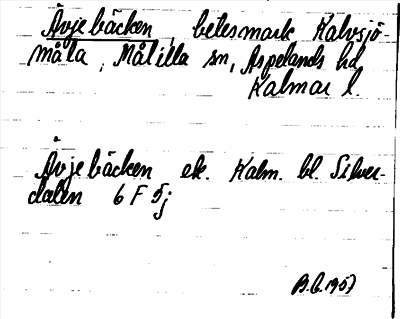 Åvjebäcken, betesmark Kalvsjö-
måla, Målilla sn, Aspelands hd
Kalmar l.
Åvjebäcken ek. Kalm. bl. Silver-
dalen 6 F 5j